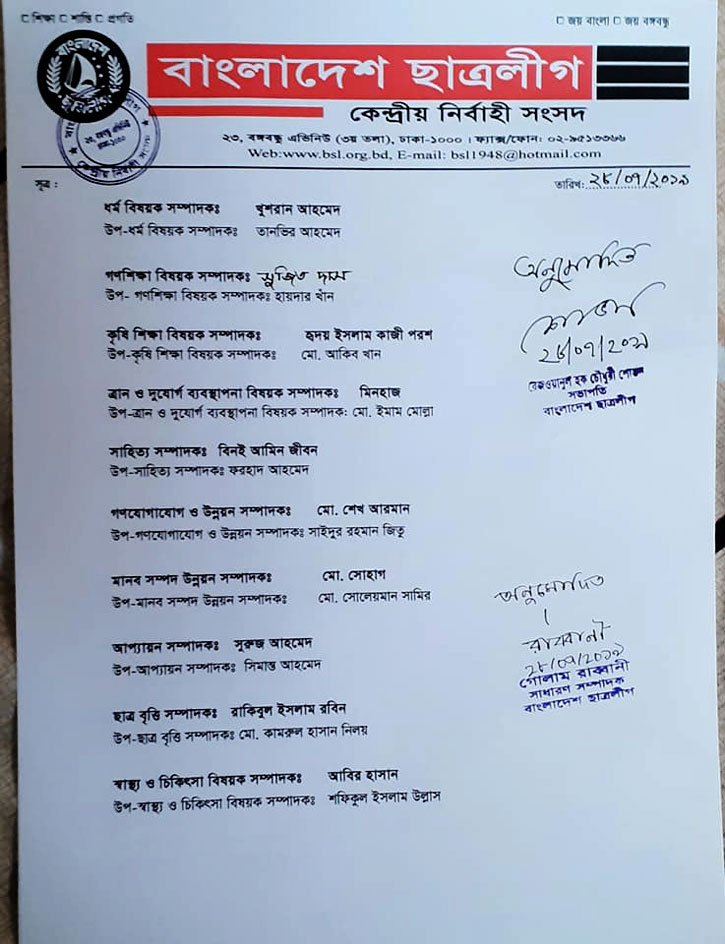 শিক্ষা শান্তি প্রগতি
জয় বাংলা জয় বঙ্গবন্ধু
বাংলাদেশ
ছাত্রলীগ
বাংলাদেশ ছাত্রলীগ
কেন্দ্রীয় নির্বাহী সংসদ
২৩, বঙ্গবন্ধু এভিনিউ (৩য় তলা), ঢাকা-১০০০ । ফ্যাক্স/ফোন: ০২-৯৫১৩৩৬৬
Web:www.bsl.org.bd, E-mail: bsl1948@hotmail.com
সূত্র :
তারিখ: ২৮/০৭/২০১৯
ধর্ম বিষয়ক সম্পাদকঃ খুশরান আহমেদ
উপ-ধর্ম বিষয়ক সম্পাদকঃ তানভির আহমেদ
গণশিক্ষা বিষয়ক সম্পাদকঃ সুজিত দাস
উপ- গণশিক্ষা বিষয়ক সম্পাদকঃ হায়দার খাঁন
কৃষি শিক্ষা বিষয়ক সম্পাদকঃ হৃদয় ইসলাম কাজী পরশ
উপ-কৃষি শিক্ষা বিষয়ক সম্পাদকঃ মো. আকিব খান
ত্রান ও দুযোর্গ ব্যবস্থাপনা বিষয়ক সম্পাদকঃ মিনহাজ
উপ-ত্রান ও দুযোর্গ ব্যবস্থাপনা বিষয়ক সম্পাদক: মো. ইমাম মোল্লা
সাহিত্য সম্পাদকঃ বিনই আমিন জীবন
উপ-সাহিত্য সম্পাদকঃ ফরহাদ আহমেদ
গণযোগাযোগ ও উন্নয়ন সম্পাদকঃ মো. শেখ আরমান
উপ-গণযোগাযোগ ও উন্নয়ন সম্পাদকঃ সাইদুর রহমান জিতু
মানব সম্পদ উন্নয়ন সম্পাদকঃ মো. সোহাগ
উপ-মানব সম্পদ উন্নয়ন সম্পাদকঃ মো. সোলেয়মান সামির
আপ্যায়ন সম্পাদকঃ সুরুজ আহমেদ
উপ-আপ্যায়ন সম্পাদকঃ সিমান্ত আহমেদ
ছাত্র বৃত্তি সম্পাদকঃ রাকিবুল ইসলাম রবিন
উপ-ছাত্র বৃত্তি সম্পাদকঃ মো. কামরুল হাসান নিলয়
স্বাস্থ্য ও চিকিৎসা বিষয়ক সম্পাদকঃ আবির হাসান
উপ-স্বাস্থ্য ও চিকিৎসা বিষয়ক সম্পাদকঃ শফিকুল ইসলাম উল্লাস
অনুমোদিত
শোভন
২৮/০৭/২০১৯
রেজওয়ানুল হক চৌধুরী শোভন
সভাপতি
বাংলাদেশ ছাত্রলীগ
অনুমোদিত
রাব্বানী
২৮/০৭/২০১৯
গোলাম রাব্বানী
সাধারণ সম্পাদক
বাংলাদেশ ছাত্রলীগ